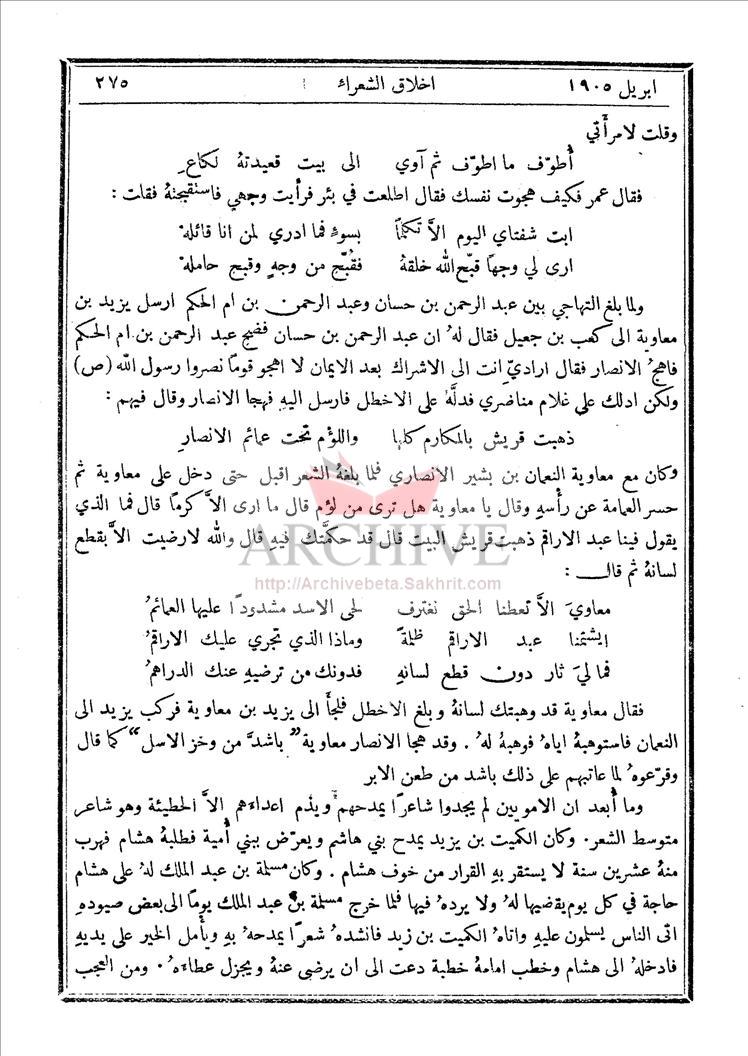 ابريل ١٩٠٥ اخلاق الشعراء ٢٧٥
وقلت لامرأتي
أُطوّف ما اطوّف ثم آوي الى بيت قعيدتهُ لكاعِ
فقال عمر فكيف هجوت نفسك فقال اطلعت في بئر فرأيت وجهي فاستقبحتهُ فقلت :
ابت شفتاي اليوم الاَّ تكلماً بسوءٍ فما ادري لمن انا قائلهْ
ارى لي وجهاً قبّح الله خلقهُ فقُبّح من وجهٍ وقبح حاملهْ
ولما بلغ التهاجي بين عبد الرحمن بن حسان وعبد الرحمن بن ام الحكم ارسل يزيد بن
معاوية الى كعب بن جعيل فقال لهُ ان عبد الرحمن بن حسان فضح عبد الرحمن بن ام الحكم
فاهجُ الانصار فقال ارادّي انت الى الاشراك بعد الايمان لا اهجو قوماً نصروا رسول الله (ص)
ولكن ادلك على غلام مناضري فدلَّهُ على الاخطل فارسل اليهِ فهجا الانصار وقال فيهم :
ذهبت قريش بالمكارم كلها واللؤم تحت عمائم الانصارِ
وكان مع معاوية النعمان بن بشير الانصاري فلما بلغهُ الشعر اقبل حتى دخل على معاوية ثم
حسر العمامة عن رأْسهِ وقال يا معاوية هل ترى من لؤم قال ما ارى الاَّ كرماً قال فما الذي
يقول فينا عبد الاراقم ذهبت قريش البيت قال قد حكمَّتك فيهِ قال والله لارضيت الاَّ بقطع
ARCHIVE
http://Archivebeta.Sakhrit.com
لسانهُ ثم قال :
معاويَ الاَّ تعطنا الحق نغترف لحى الاسد مشدودًا عليها العمائمُ
ايشتمنا عبد الاراقم ظلمةً وماذا الذي تجري عليك الاراقمُ
فما ليَ ثار دون قطع لسانهِ فدونك من ترضيهِ عنك الدراهمُ
فقال معاوية قد وهبتك لسانهُ وبلغ الاخطل فلجأَ الى يزيد بن معاوية فركب يزيد الى
النعمان فاستوهبهُ اياهُ فوهبهُ لهُ . وقد هجا الانصار معاوية "باشدَّ من وخز الاسل" كما قال
وقرّعوهُ لما عاتبهم على ذلك باشد من طعن الابر
وما أُبعد ان الامويين لم يجدوا شاعرًا يمدحهم ويذم اعداءهم الاَّ الحطيئة وهو شاعر
متوسط الشعر . وكان الكميت بن يزيد يمدح بني هاشم ويعرّض ببني أُمية فطلبهُ هشام فهرب
منهُ عشرين سنة لا يستقر بهِ القرار من خوف هشام . وكان مسلمة بن عبد الملك لهُ على هشام
حاجة في كل يوم يقضيها لهُ ولا يردهُ فيها فلما خرج مسلمة بن عبد الملك يوماً الى بعض صيودهِ
اتى الناس يسلمون عليهِ واتاهُ الكميت بن زيد فانشدهُ شعرًا يمدحهُ بهِ ويأمل الخير على يديهِ
فادخلهُ الى هشام وخطب امامهُ خطبة دعت الى ان يرضى عنهُ ويجزل عطاءهُ . ومن العجب